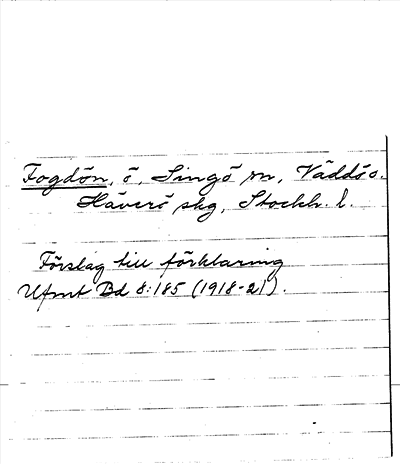 Fogdön, ö, Singö sn, Väddö o.
Häverö skg, Stockh. l.
Förslag till förklaring
Ufmt Bd 8:185 (1918-21).